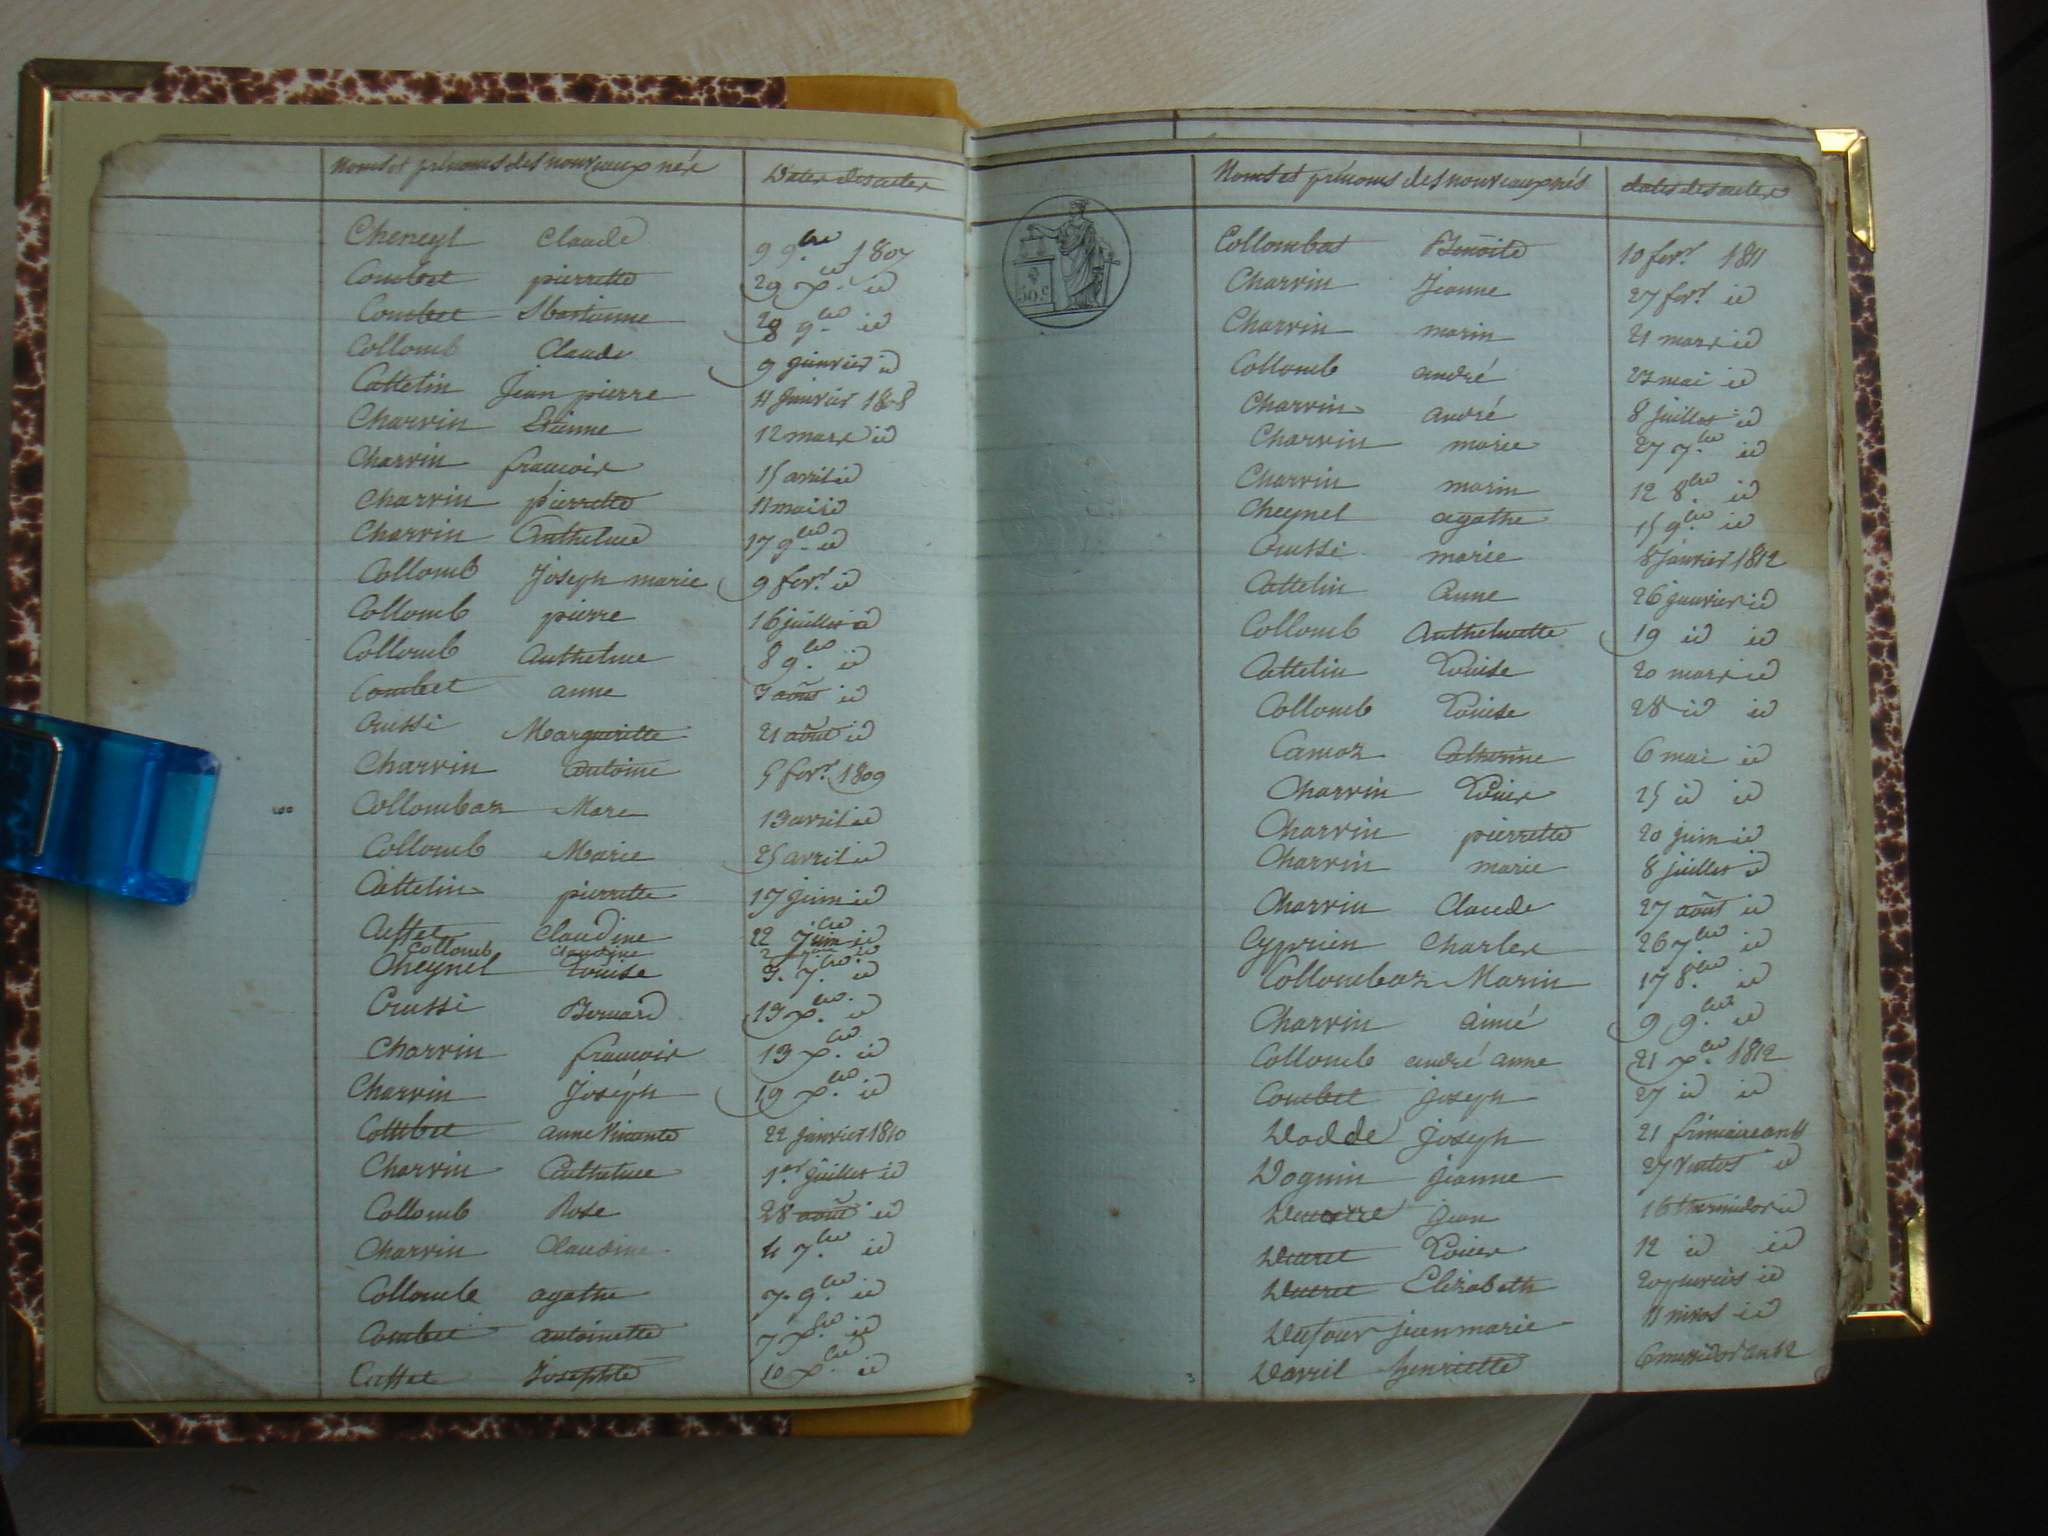 Noms et prénoms des nouveaux nés Dates des actes
Cheneyl Claude 9 9.bre 1807
Combet pierrette 29 x.bre id
Combet 28 9.bre id
Collomb Claude 9 janvier id
Cattelin Jean pierre 11 janvier 1808
Charvin Etienne 12 mars id
Charvin francois 15 avril id
Charvin pierrette 11 mai id
Charvin Anthelme 17 9.bre id
Collomb Joseph marie 9 fevr. id
Collomb pierre 16 juillet id
Collomb Anthelme 8 9.bre id
Combet anne 7 août id
Crussi Marguerite 21 août id
Charvin Antoine 5 fevr. 1809
Collombaz Marc 13 avril id
Collomb Marie 25 avril id
Cattelin pierrette 17 juin id
Claudine 22 id
Collomb Claudine
Cheynel Louise 3. 7.bre id
Crussi Bernard 13 x.bre id
Charvin francois 13 x.bre id
Charvin Joséph 19 x.bre id
Combet anne Vincente 22 janvier 1810
Charvin Anthelme 1.er juillet id
Collomb Rose 28 août id
Charvin Claudine 4 7.bre id
Collomb agathe 7. 9.bre id
Combet antoinette 7 x.bre id
Cattet Josephte 10 x.bre id
Noms et prénoms des nouveaux nés dates des actes
50 c
Collombat Benoite 10 fevr. 1811
Charvin Jeanne 27 fevr. id
Charvin marin 21 mars id
Collomb andré 23 mai id
Charvin André 8 juillet id
Charvin marie 27 7.bre id
Charvin marin 12 8.bre id
Cheynel agathe 15 9.bre id
Crussi marie 8 janvier 1812
Cattelin Anne 26 janvier id
Collomb Anthelmette 19 id id
Cattelin Louise 20 mars id
Collomb Louise 28 id id
Camoz Catherine 6 mai id
Charvin Louis 25 id id
Charvin pierrette 20 juin id
Charvin marie 8 juillet id
Charvin Claude 27 août id
Cyprien Charles 26 7.bre id
Collombaz Marin 17 8.bre id
Charvin aimé 9 9.bre id
Collomb andré anne 21 x.bre 1812
Combet joseph 27 id id
Dadde joseph 21 frimaire an 11
Doguin jeanne 27 Ventos id
jean 16 thermidor id
Ducret Louis 12 id id
Ducret Elizabeth 20 id
Dufour jean marie 11 nivos id
Davril henriette 6 messidor an 12
3